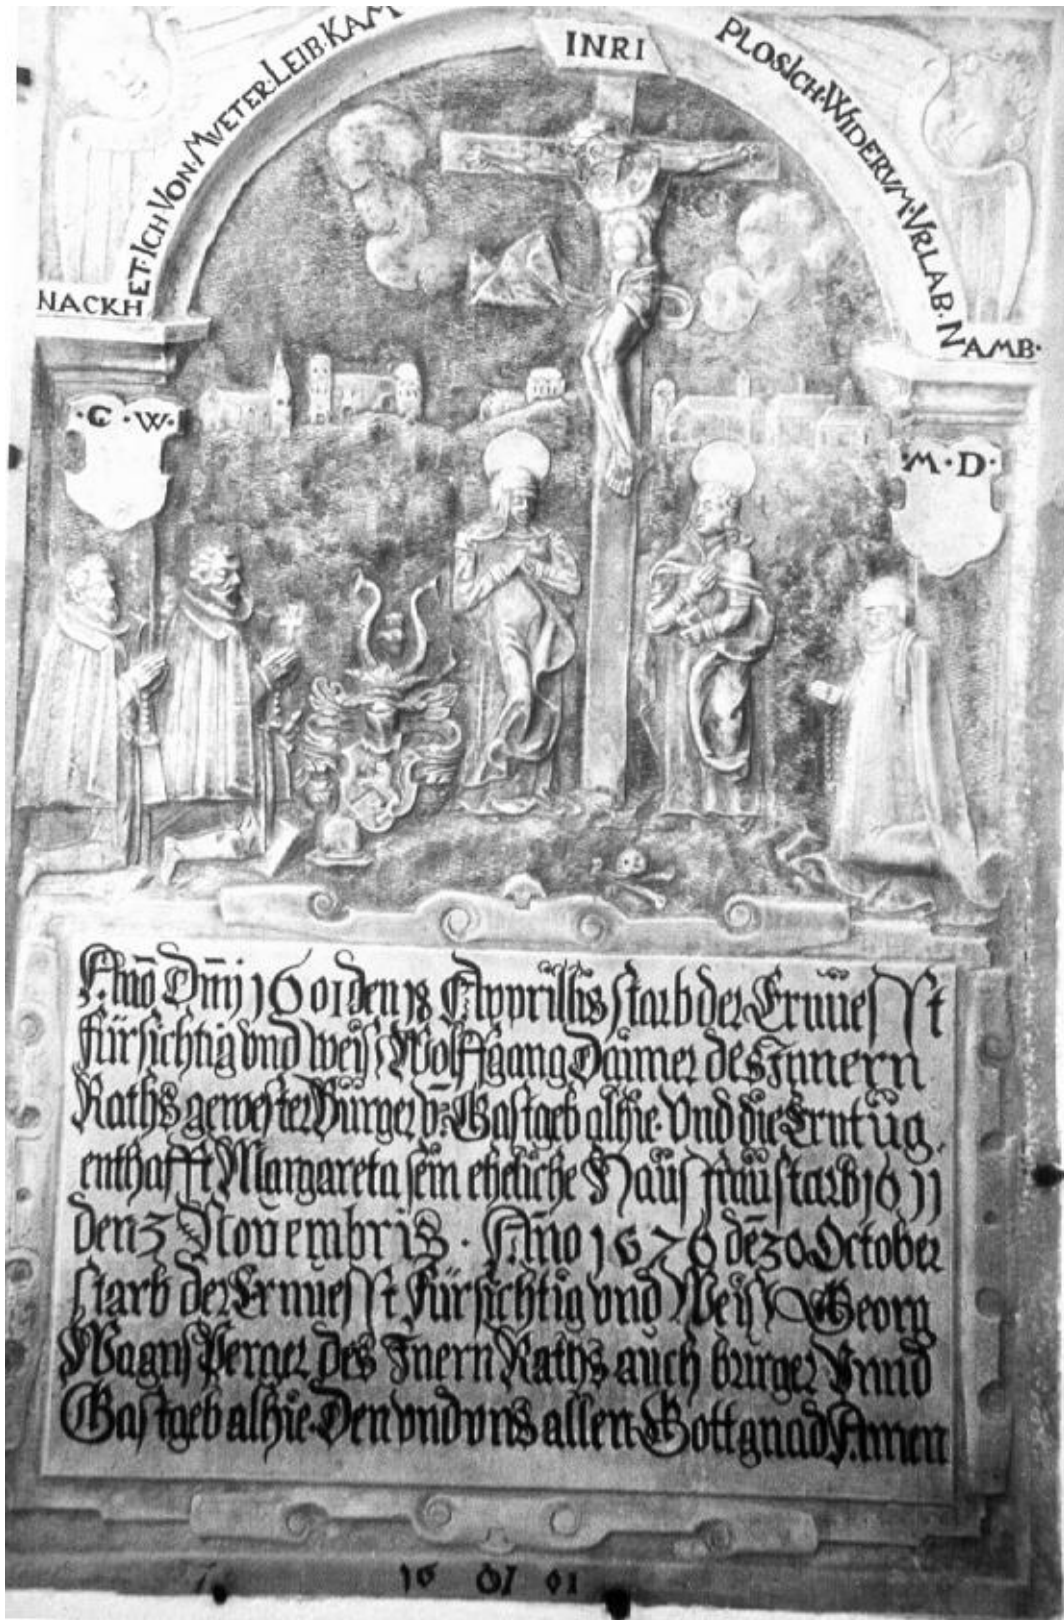 NACKHET·ICH·VON·MVETER·LEIB·KAM
INRI
PLOS·ICH·WIDERVM·VRLAB·NAMB·
·G·W·
·M·D·
Año Dm̄j 1601 den 18 Apprillis starb der Ernuesst
fürsichtig vnd weiß Wolffgang Daimer des Innern
Raths gewester Bürger vn̄ Gastgeb alhie· Vnd die Erntüg
enthafft Margareta sein eheliche Haüsfraü starb 1611
den 3 Nouembris· Año 1626 dē 30 October
starb der Ernuesst fürsichtig vnd Weiß Georg
des Inern Raths auch burger Vnnd
Gastgeb alhie· Den vnd vns allen Gott gnad Amen
16 01